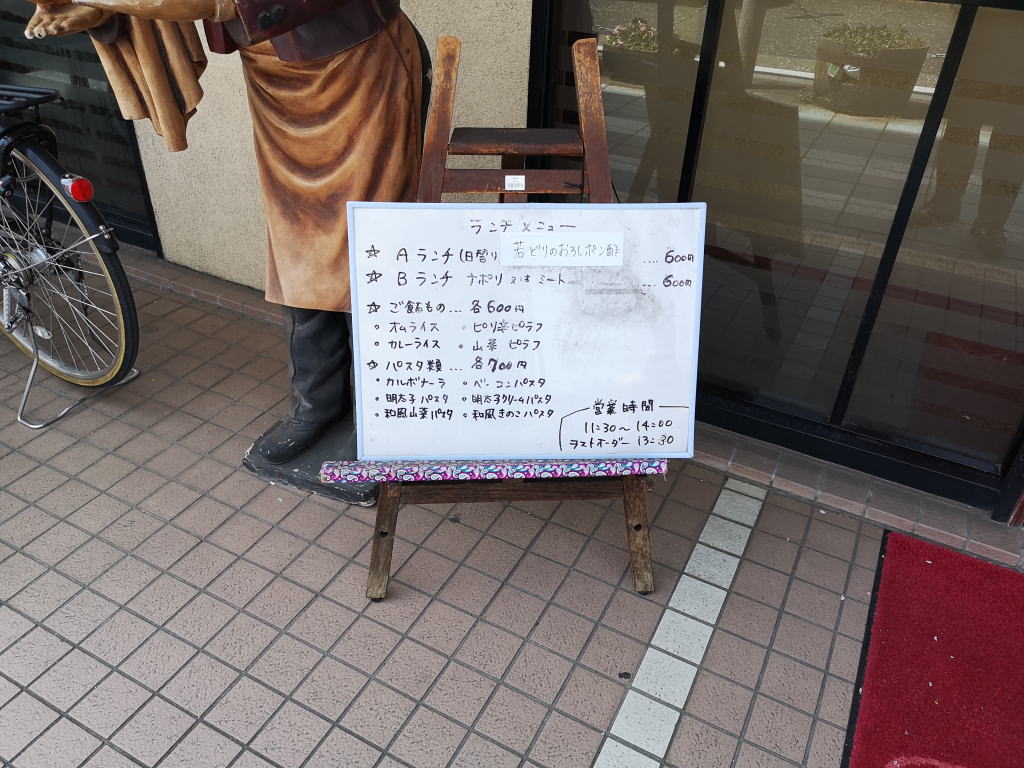 ランチメニュー
☆ Aランチ(日替り 若どりのおろしポン酢 .... 600円
☆ Bランチ ナポリ又はミート .... 600円
☆ ご飯もの... 各600円
。オムライス 。ピリ辛ピラフ
。カレーライス 。山菜ピラフ
☆ パスタ類... 各700円
。カルボナーラ 。ベーコンパスタ
。明太子パスタ 。明太子クリームパスタ
。和風山菜パスタ 。和風きのこパスタ
営業時間
11:30〜14:00
ラストオーダー 13:30